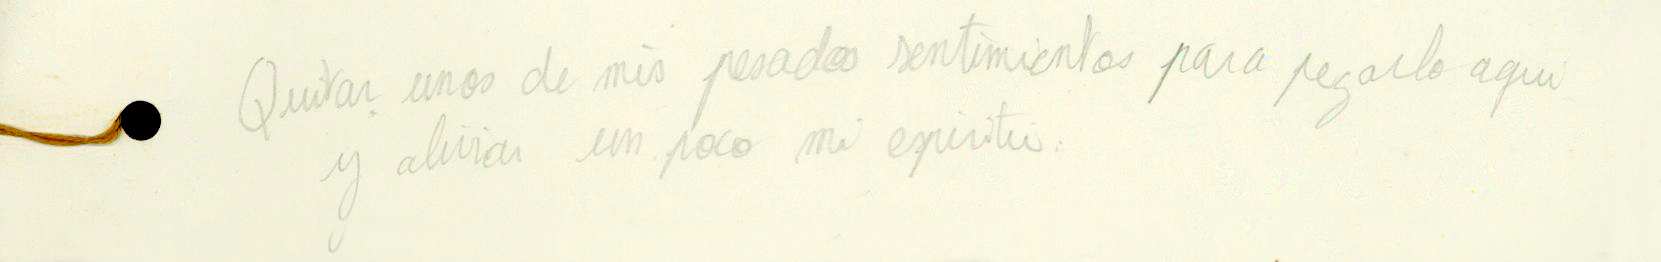 Quitar unos de mis pesados sentimientos para pegarlo aqui
y aliviar un poco mi espiritu.